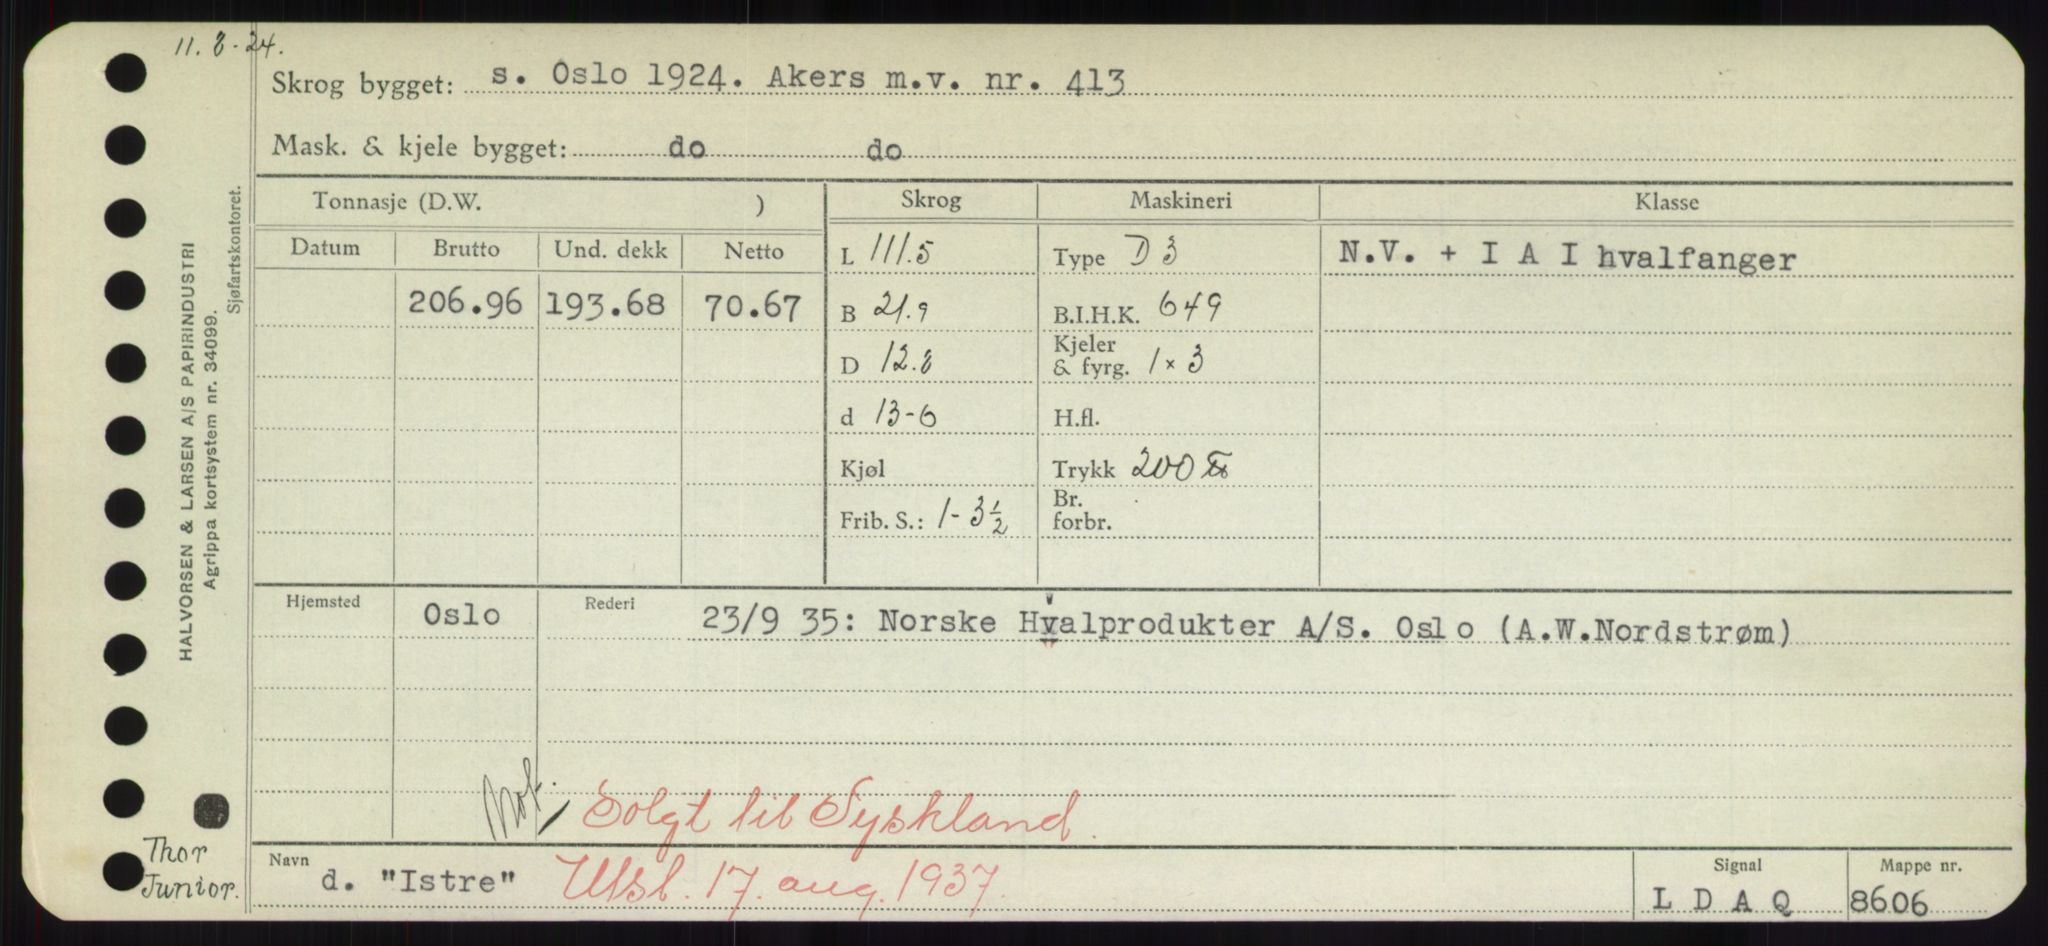 11.8-24.
Skrog bygget: s. Oslo 1924. Akers m.v. nr. 413
Mask. & kjele bygget: do do
Tonnasje (D.W. ) Skrog Maskineri Klasse
Datum Brutto Und. dekk Netto
L 111.5 Type D 3 N.V. + I A I hvalfanger
206.96 193.68 70.67 B 21.9 B.I.H.K. 649
D 12.8 Kjeler & fyrg. 1 x 3
d 13-6 H.fl.
Kjøl Trykk 200 ℔
Frib. S.: 1-3½ Br. forbr.
Hjemsted Oslo Rederi 23/9 35: Norske Hvalprodukter A/S. Oslo (A.W.Nordstrøm)
Not. Solgt til Tyskland.
Navn d. "Istre" Utsl. 17. aug. 1937. Signal L D A Q Mappe nr. 8606
HALVORSEN & LARSEN A/S PAPIRINDUSTRI
Agrippa kortsystem nr. 34099.
Sjøfartskontoret.
Thor
Junior.